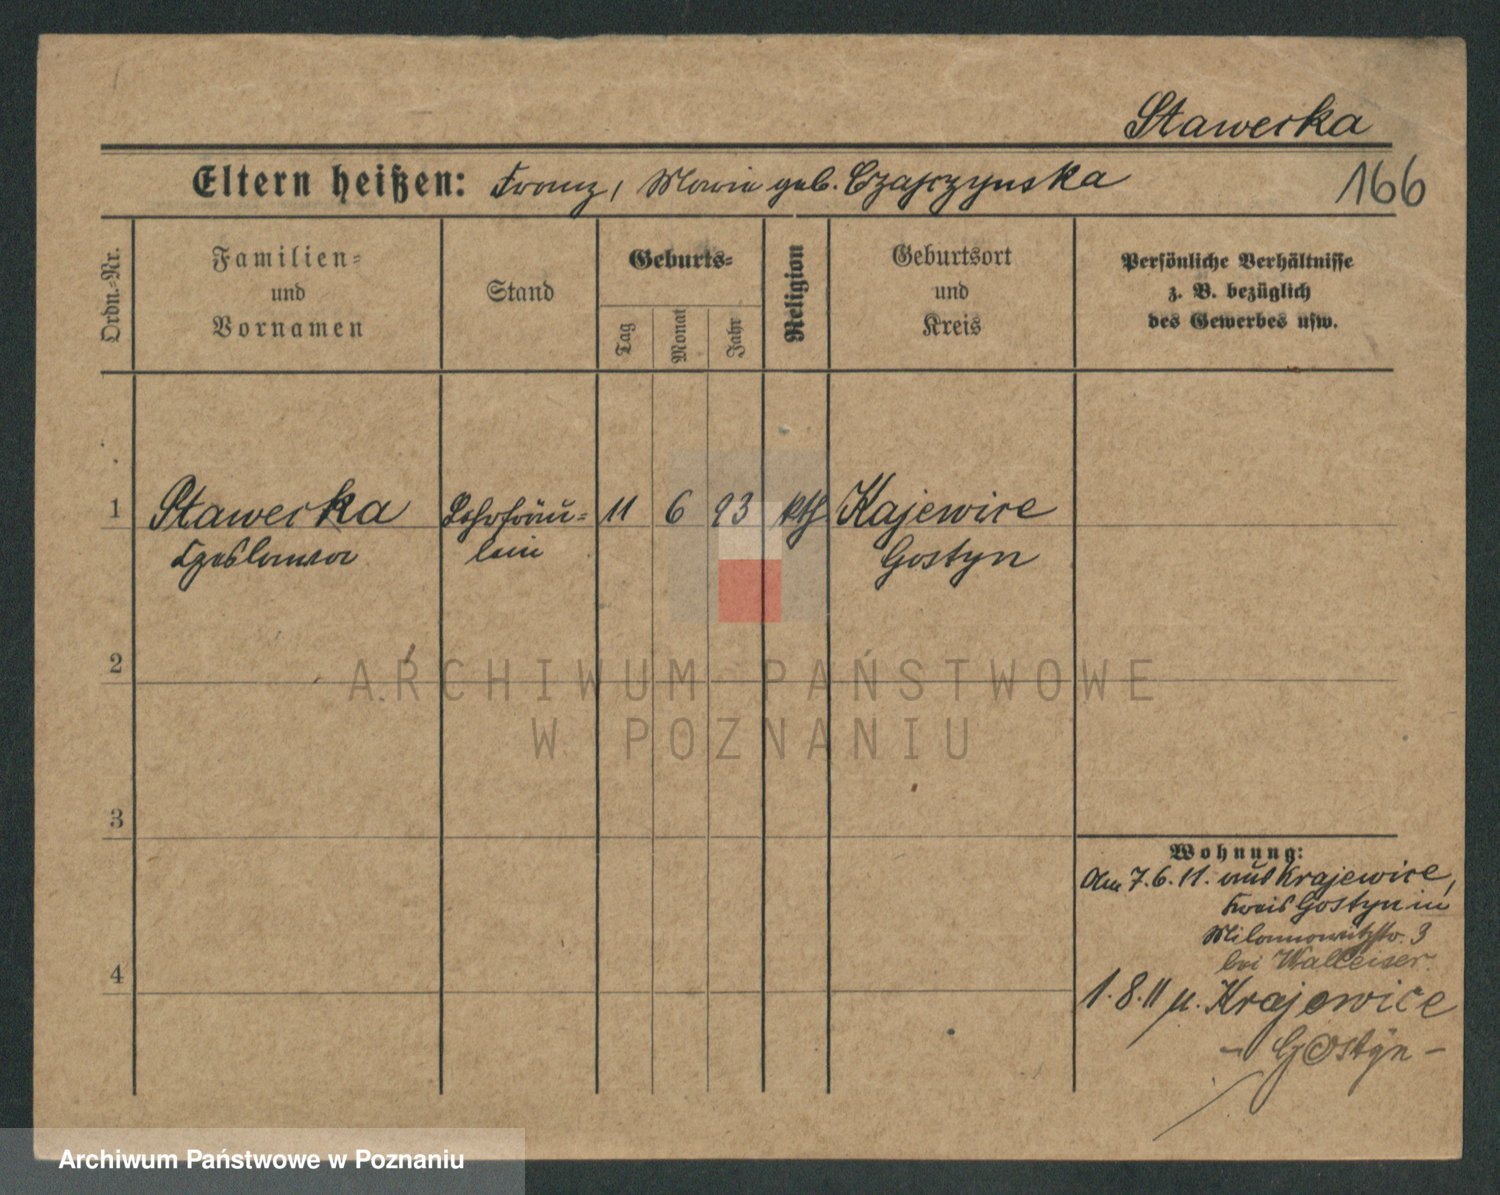 Stawerka
Eltern heißen: Franz, Marie geb. Czajczynska
166
Ordn.-Nr.
Familien-
und
Vornamen
Stand
Geburts-
Tag
Monat
Jahr
Religion
Geburtsort
und
Kreis
Persönliche Verhältnisse
z. B. bezüglich
des Gewerbes usw.
1 Stawerka Lehrfräu- 11 6 93 kth Kajewice
Czeslawa lein Gostyn
2
3
4
Wohnung:
Am 7.6.11. aus Krajewice,
Kreis Gostyn in
3
bei Walleiser.
1.8.11 n. Krajewice
- Gostÿn -
ARCHIWUM PAŃSTWOWE
W POZNANIU
Archiwum Państwowe w Poznaniu